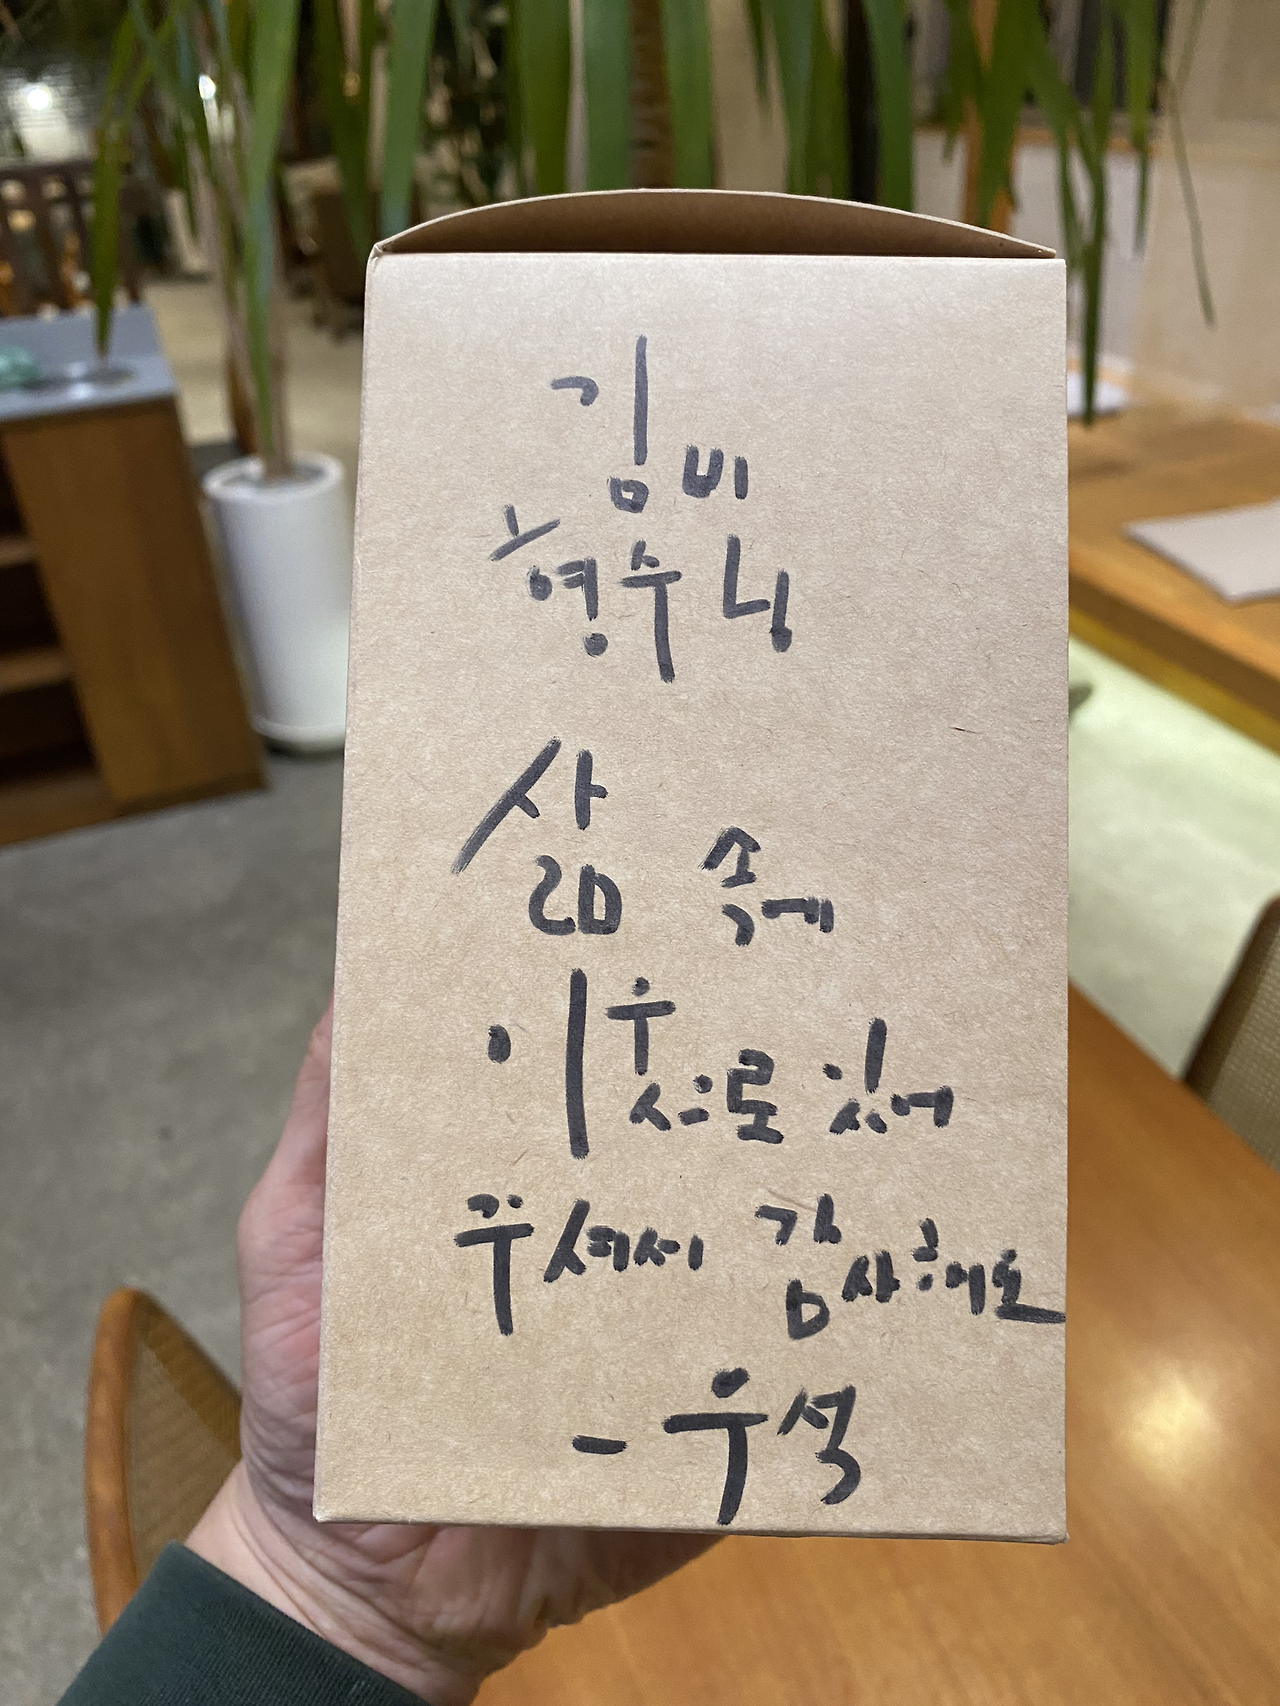 김비
형수님
삶 속에
이웃으로 있어
주셔서 감사해요
- 우석